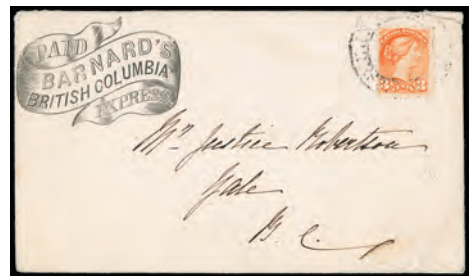 PAID
BARNARD'S
BRITISH COLUMBIA
EXPRESS
Mr Justice Robertson
Yale
B. C.